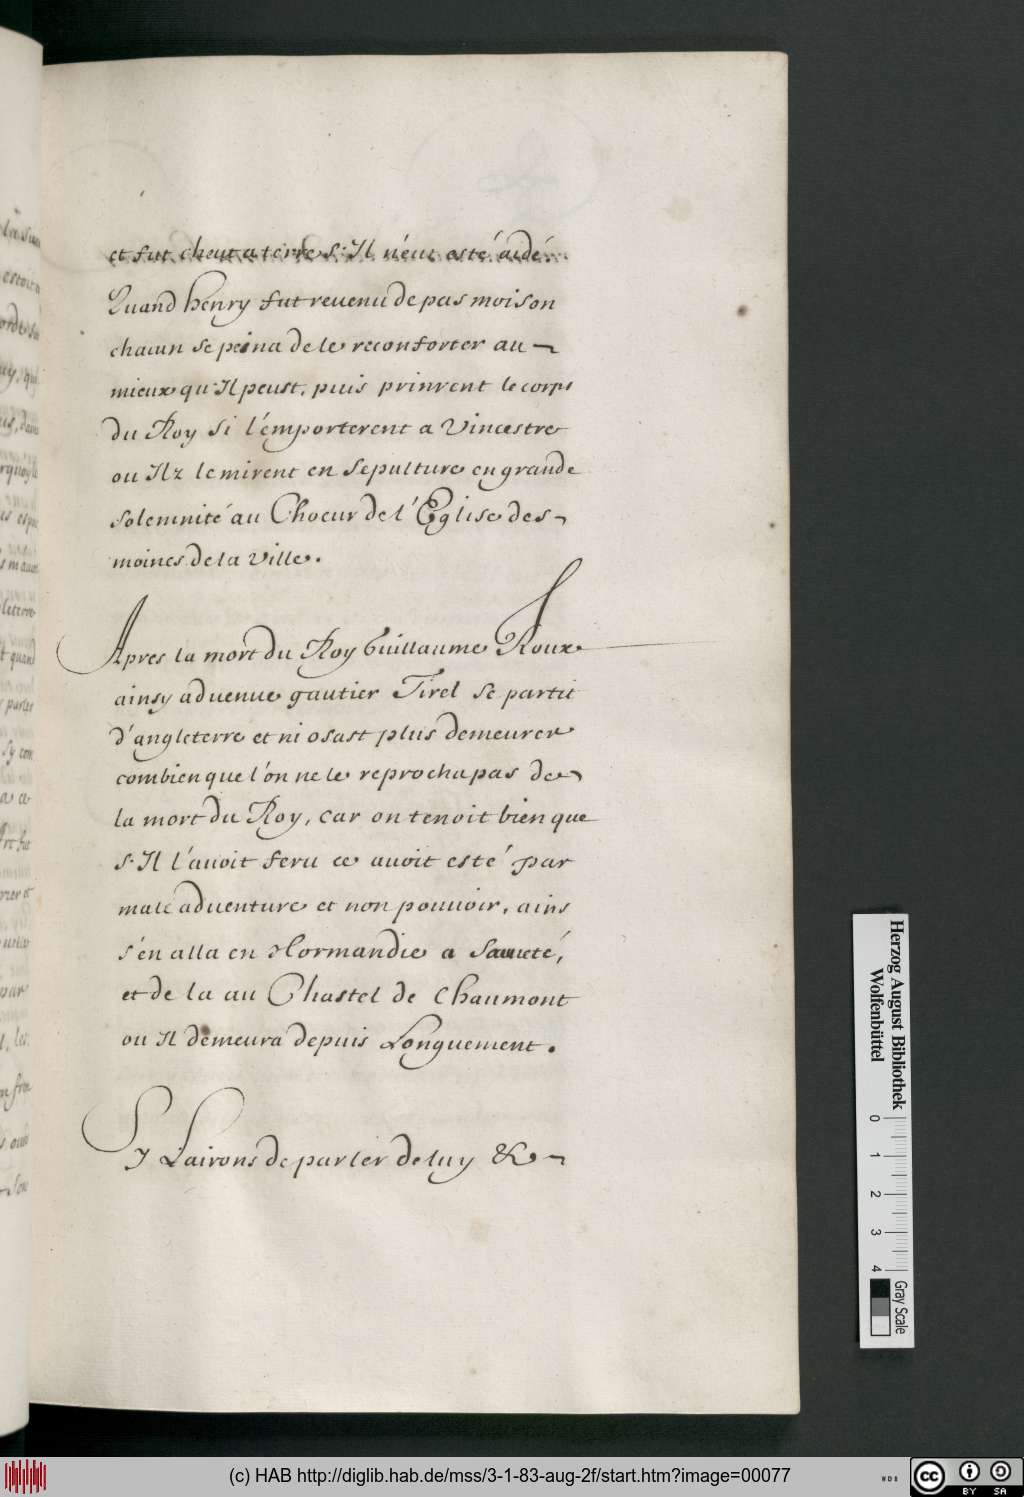 et fut cheut a terre s'Il n'éut esté aidé.
Quand henry fut reuenu de pasmoison
chacun se peina de le reconforter au
mieux qu'Il peust, puis prinrent le corps
du Roy si l'émporterent a Vincestre
ou Ilz le mirent en sepulture en grande
solemnité au Choeur de l'Eglise des
moines de la Ville.
Apres la mort du Roy Guillaume Roux
ainsy aduenue gautier Tirel se partit
d'angleterre et ni osast plus demeurer
combien que l'on ne le reprocha pas de
la mort du Roy, car on tenoit bien que
s'Il l'auoit feru ce auoit esté par
male aduenture et non pouuoir, ains
s'én alla en Normandie a sauueté,
et de la au Chastel de Chaumont
ou Il demeura depuis Longuement.
Sy Lairons de parler de luy &c
Herzog August Bibliothek
Wolfenbüttel
0 1 2 3 4
Gray Scale
(c) HAB http://diglib.hab.de/mss/3-1-83-aug-2f/start.htm?image=00077
WDB
cc BY SA